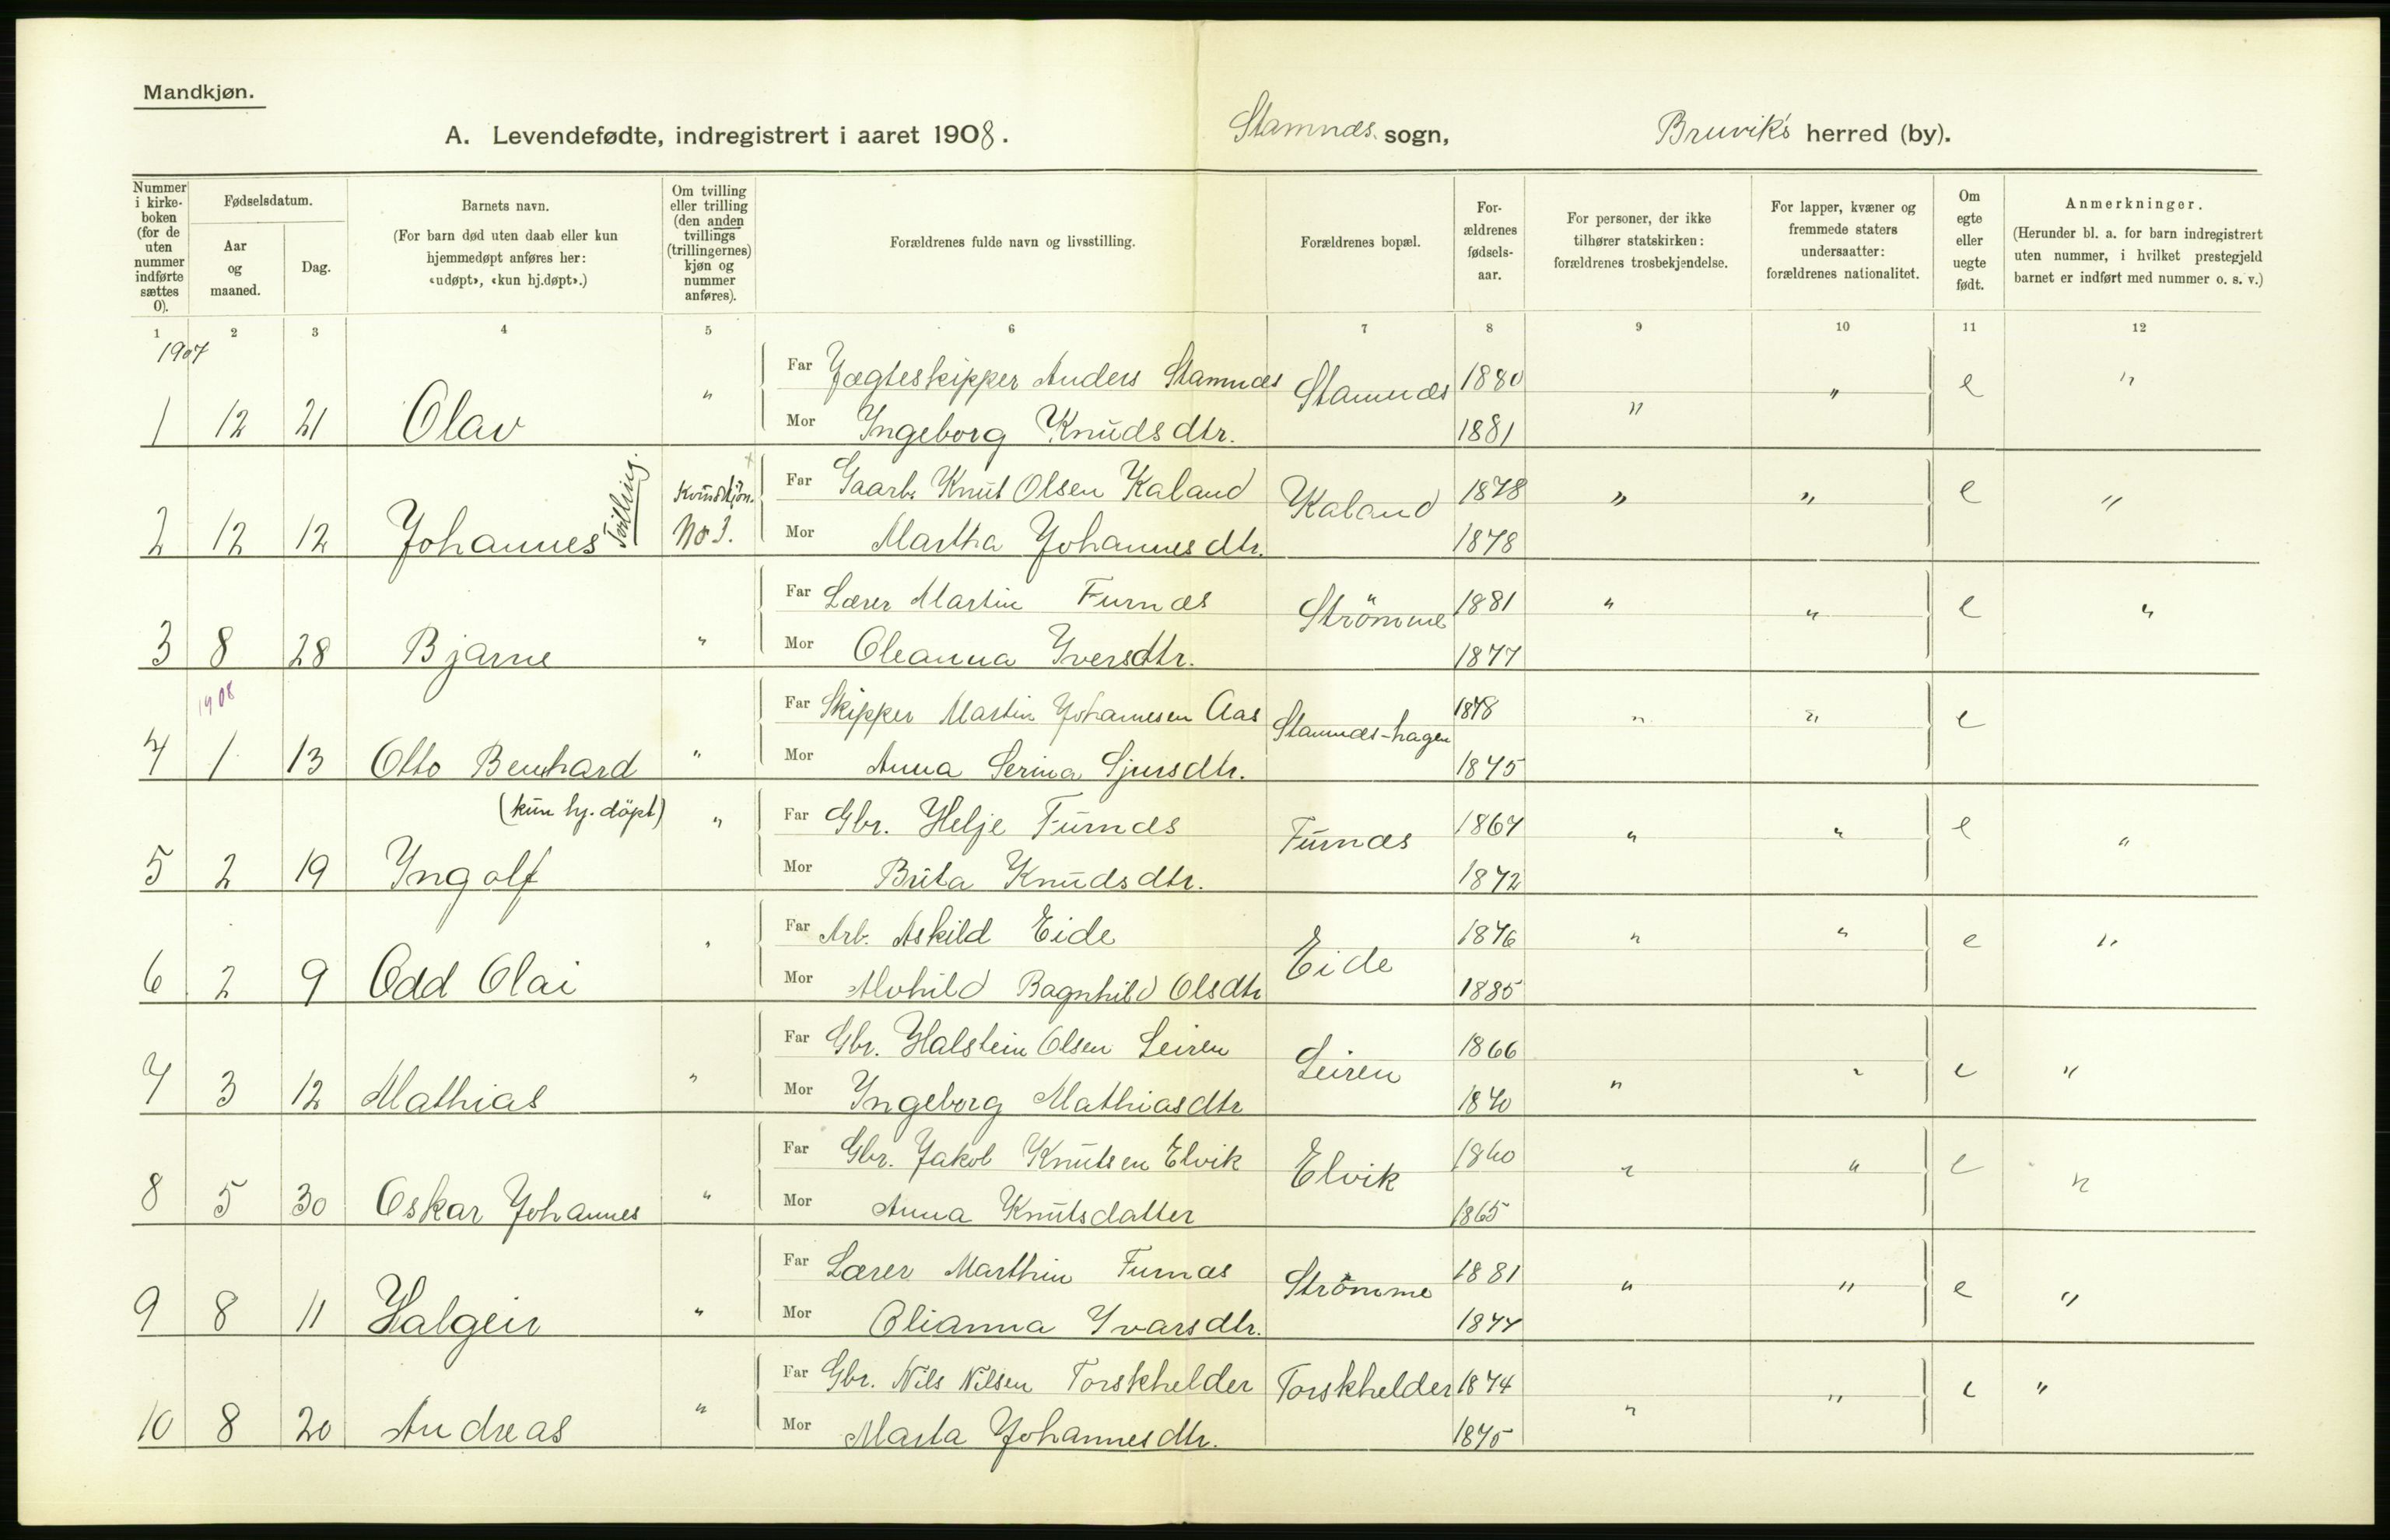 Mandkjøn.
A. Levendefødte, indregistrert i aaret 1908. Stamnæs sogn, Bruvik's herred (by).
Nummer i kirkeboken (for de uten nummer indførte sættes 0).
Fødselsdatum.
Aar og maaned.
Dag.
Barnets navn.
(For barn død uten daab eller kun hjemmedøpt anføres her: «udøpt», «kun hj.døpt».)
Om tvilling eller trilling (den anden tvillings (trillingernes) kjøn og nummer anføres).
Forældrenes fulde navn og livsstilling.
Forældrenes bopæl.
Forældrenes fødselsaar.
For personer, der ikke tilhører statskirken: forældrenes trosbekjendelse.
For lapper, kvæner og fremmede staters undersaatter: forældrenes nationalitet.
Om egte eller uegte født.
Anmerkninger.
(Herunder bl. a. for barn indregistrert uten nummer, i hvilket prestegjeld barnet er indført med nummer o. s. v.)
1 2 3 4 5 6 7 8 9 10 11 12
1907
1 12 21 Olav " Far Jægteskipper Anders Stamnæs Stamnæs 1880 " " e "
Mor Ingeborg Knudsdtr. 1881
2 12 12 Johannes Tvilling. Kvindekjön. No 3. Far Gaarb. Knut Olsen Kaland Kaland 1878 " " e "
Mor Martha Johannesdtr. 1878
3 8 28 Bjarne " Far Lærer Martin Furnæs Strömme 1881 " " e "
Mor Oleanna Iversdtr. 1877
1908
4 1 13 Otto Bernhard " Far Skipper Martin Johannesen Aas Stamnæs-hagen 1878 " " e
Mor Anna Serina Sjursdtr. 1875
(kun hj. döpt)
5 2 19 Ingolf " Far Gbr. Helje Furnæs Furnæs 1867 " " e "
Mor Brita Knudsdtr. 1872
6 2 9 Odd Olai " Far Arb. Askild Eide Eide 1876 " " e "
Mor Alvhild Ragnhild Olsdtr 1885
7 3 12 Mathias " Far Gbr. Halstein Olsen Leiren Leiren 1866 " " e "
Mor Ingeborg Mathiasdtr 1870
8 5 30 Oskar Johannes " Far Gbr. Jakob Knutsen Elvik Elvik 1860 " " e "
Mor Anna Knutsdatter 1865
9 8 11 Halgeir " Far Lærer Marthin Furnæs Strömme 1881 " " e "
Mor Olianna Ivarsdtr. 1877
10 8 20 Andreas " Far Gbr. Nils Nilsen Torskhelder Torskhelder 1874 " " e "
Mor Marta Johannesdtr. 1875